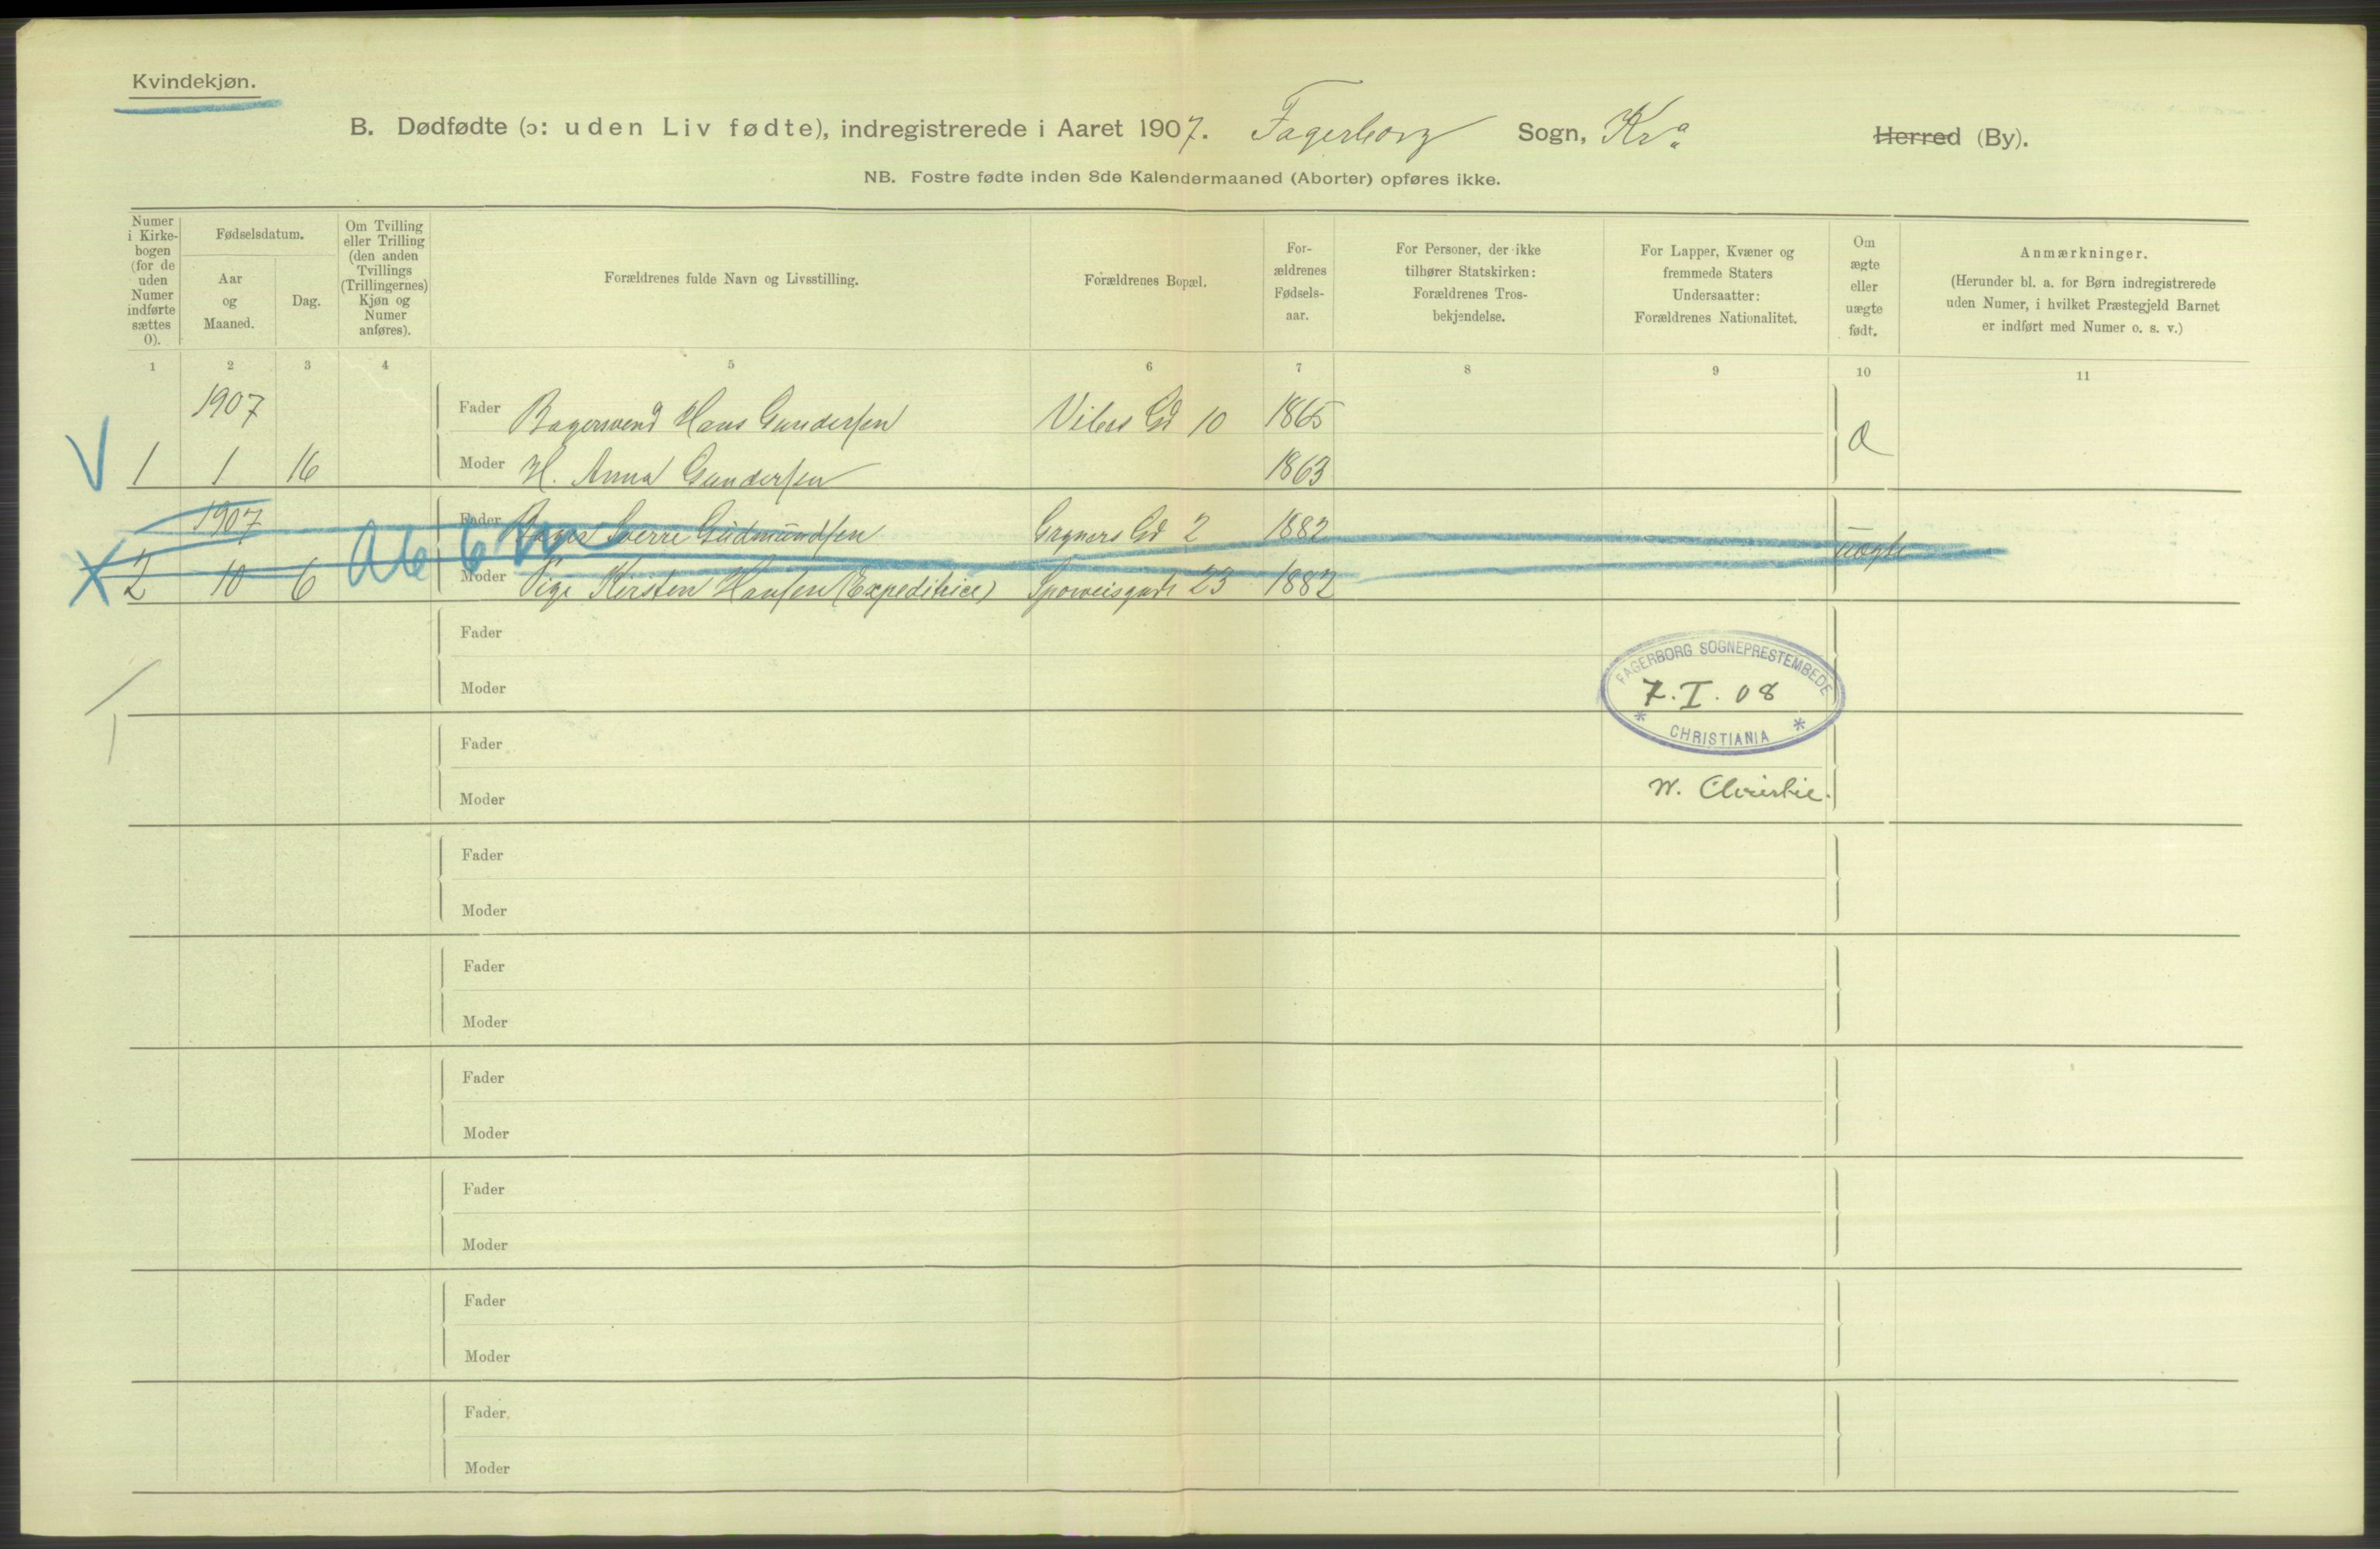 Kvindekjøn.
B. Dødfødte (ɔ: uden Liv fødte), indregistrerede i Aaret 1907. Fagerborg Sogn, Kra Herred (By).
NB. Fostre fødte inden 8de Kalendermaaned (Aborter) opføres ikke.
Numer i Kirkebogen (for de uden Numer indførte sættes 0).
Fødselsdatum.
Aar og Maaned.
Dag.
Om Tvilling eller Trilling (den anden Tvillings (Trillingernes) Kjøn og Numer anføres).
Forældrenes fulde Navn og Livsstilling.
Forældrenes Bopæl.
Forældrenes Fødselsaar.
For Personer, der ikke tilhører Statskirken: Forældrenes Trosbekjendelse.
For Lapper, Kvæner og fremmede Staters Undersaatter: Forældrenes Nationalitet.
Om ægte eller uægte født.
Anmærkninger.
(Herunder bl. a. for Børn indregistrerede uden Numer, i hvilket Præstegjeld Barnet er indført med Numer o. s. v.)
1 2 3 4 5 6 7 8 9 10 11
1907 Fader Bagersvend Hans Gundersen Vibes Gd 10 1865
V 1 1 16 Moder H. Anna Gundersen 1863
1907 Fader Sverre Gudmundsen Gd 2 1882 uægte
X 2 10 6 Moder Pige Kirsten Hansen (Expeditrice) 23 1882
Fader
Moder
FAGERBORG SOGNEPRESTEMBEDE
7. I. 08
* CHRISTIANIA *
Fader
W. Christie.
Moder
Fader
Moder
Fader
Moder
Fader
Moder
Fader
Moder
Fader
Moder
Fader
Moder